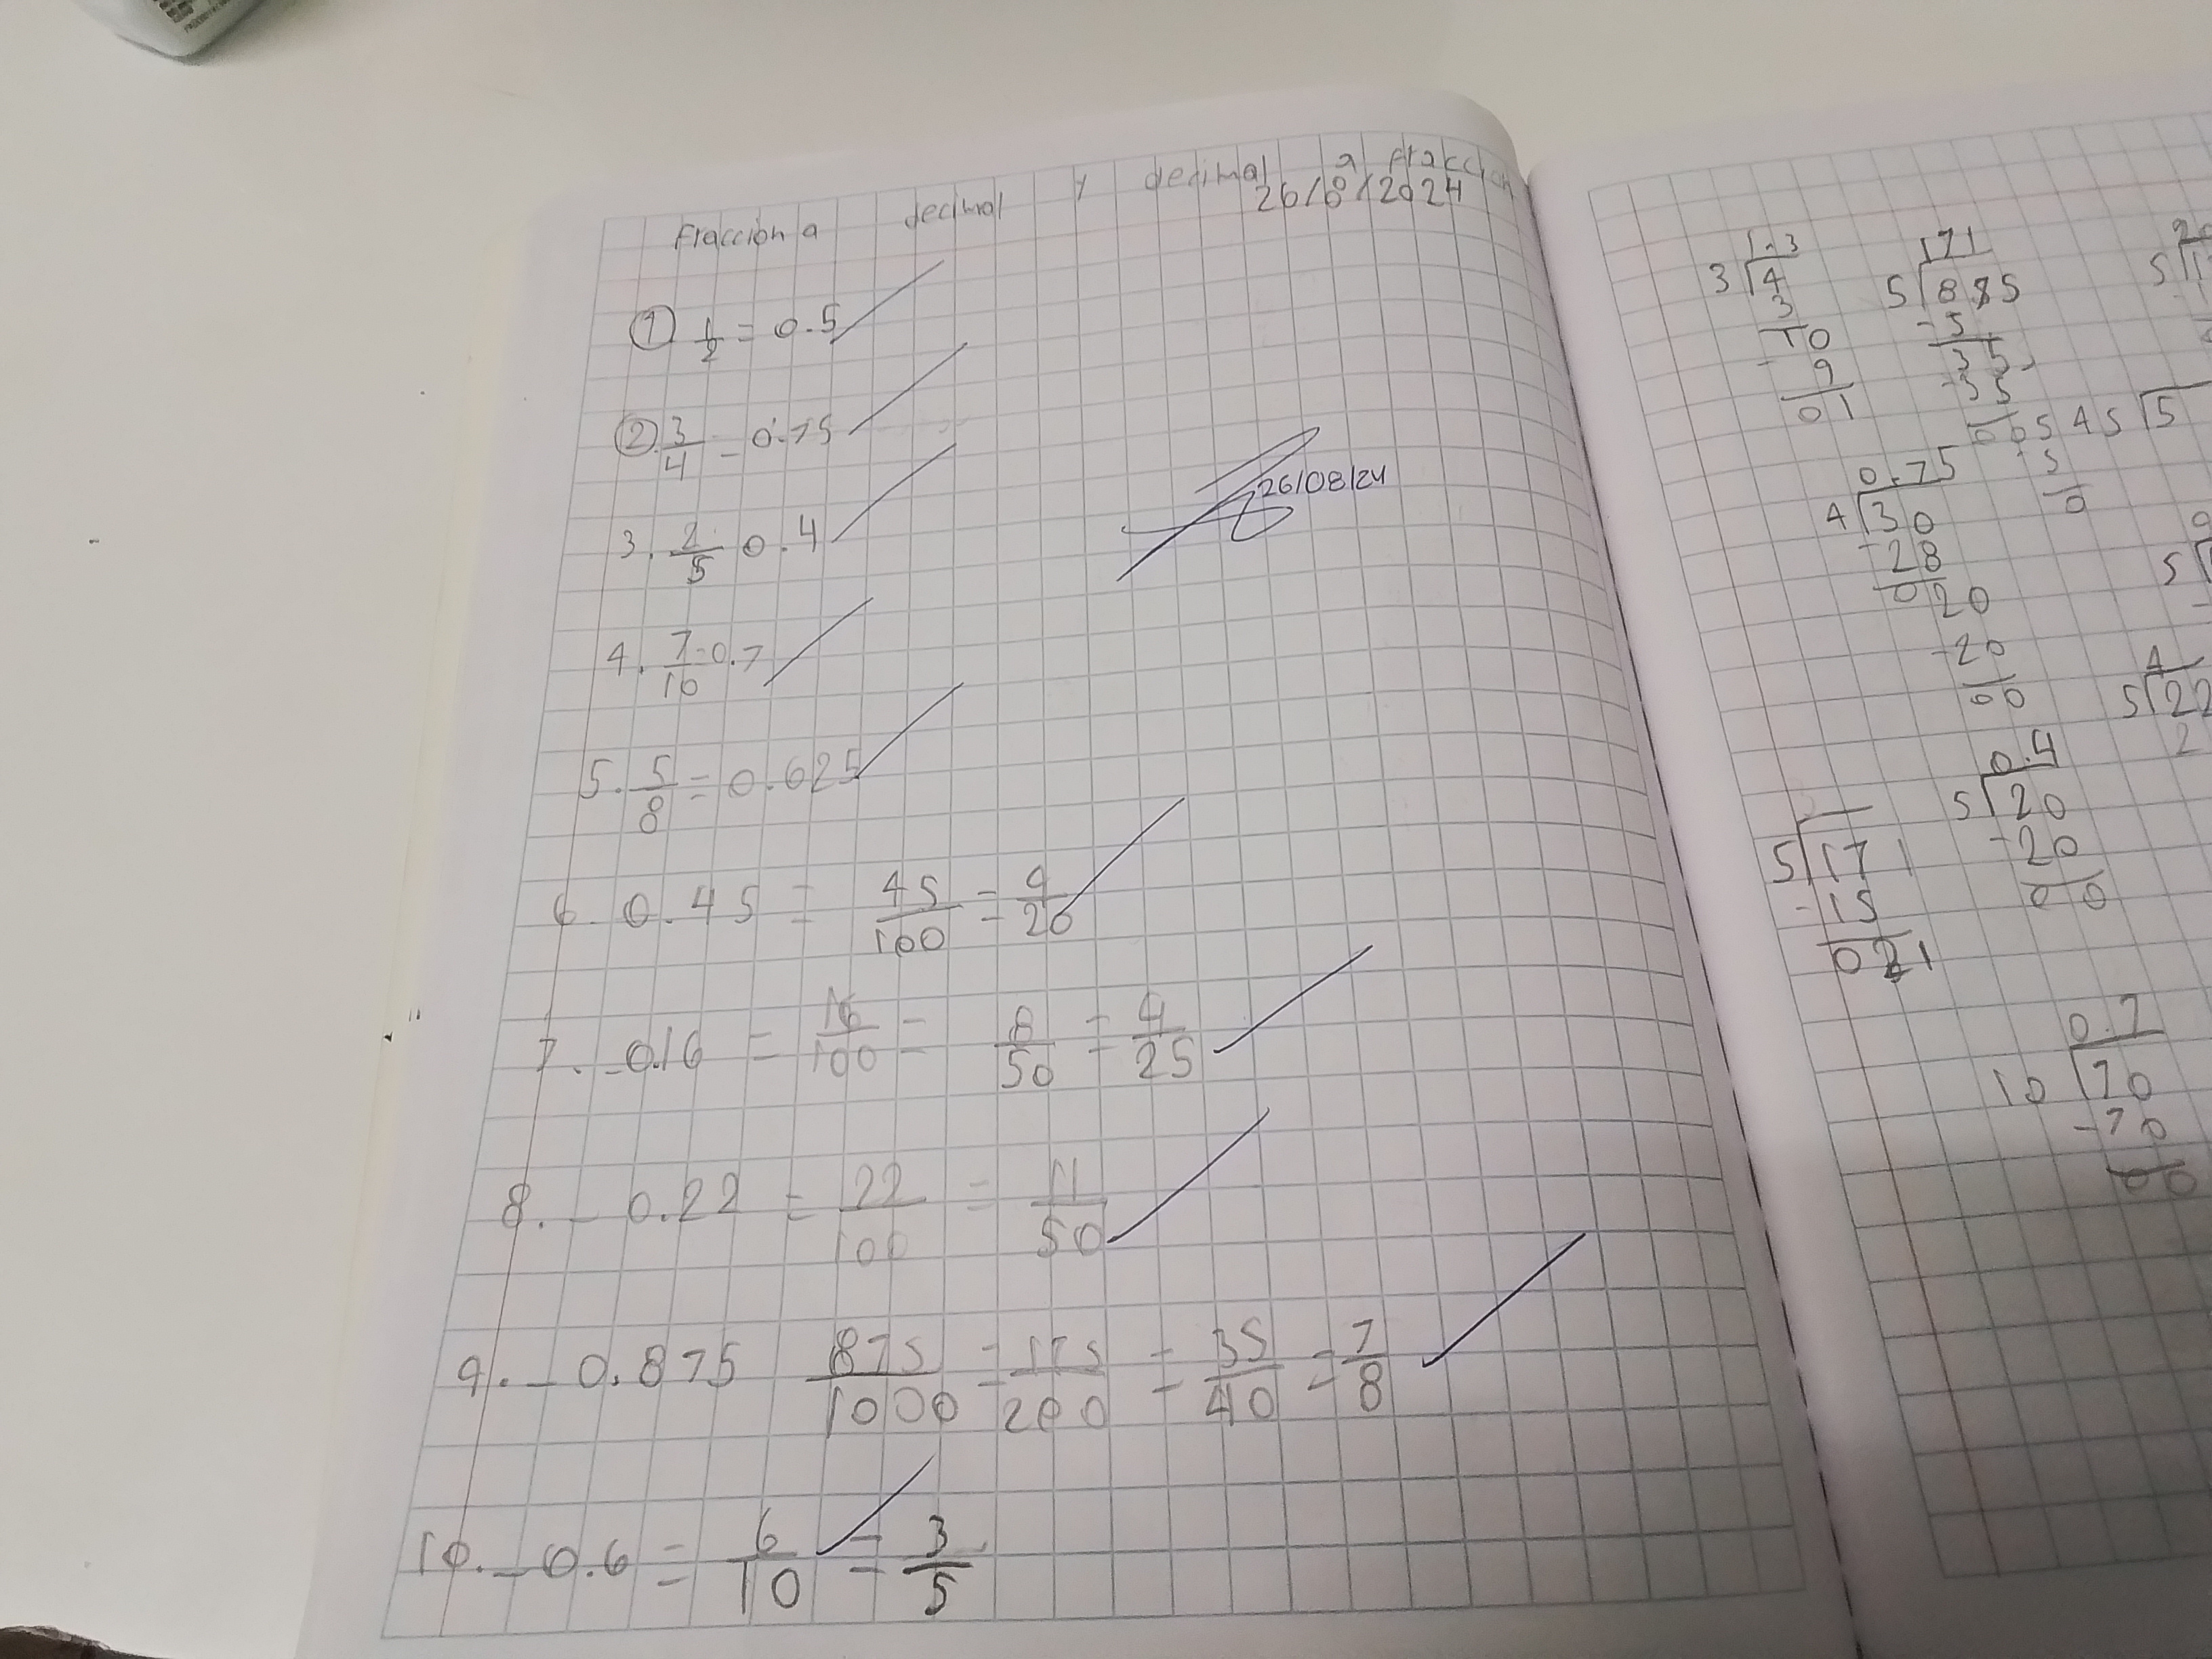 Fraccion a decimal y decimal a fraccion
26/8/2024
① 1/2 = 0.5
② 3/4 = 0.75
26/08/24
3. 2/5 0.4
4. 7/10 = 0.7
5. 5/8 = 0.625
6. 0.45 = 45/100 = 9/20
7. - 0.16 = 16/100 = 8/50 = 4/25
8. - 0.22 = 22/100 = 11/50
9. - 0.875 875/1000 = 175/200 = 35/40 = 7/8
10. - 0.6 = 6/10 = 3/5
1.3
3 4
3
10
- 9
01
171
5 875
- 5
35
- 35
005
45 5
- 5
0
0.75
4 30
- 28
020
- 20
00
0.4
5 20
- 20
00
5 171
- 15
021
0.7
10 70
- 70
00
4
5 22
2